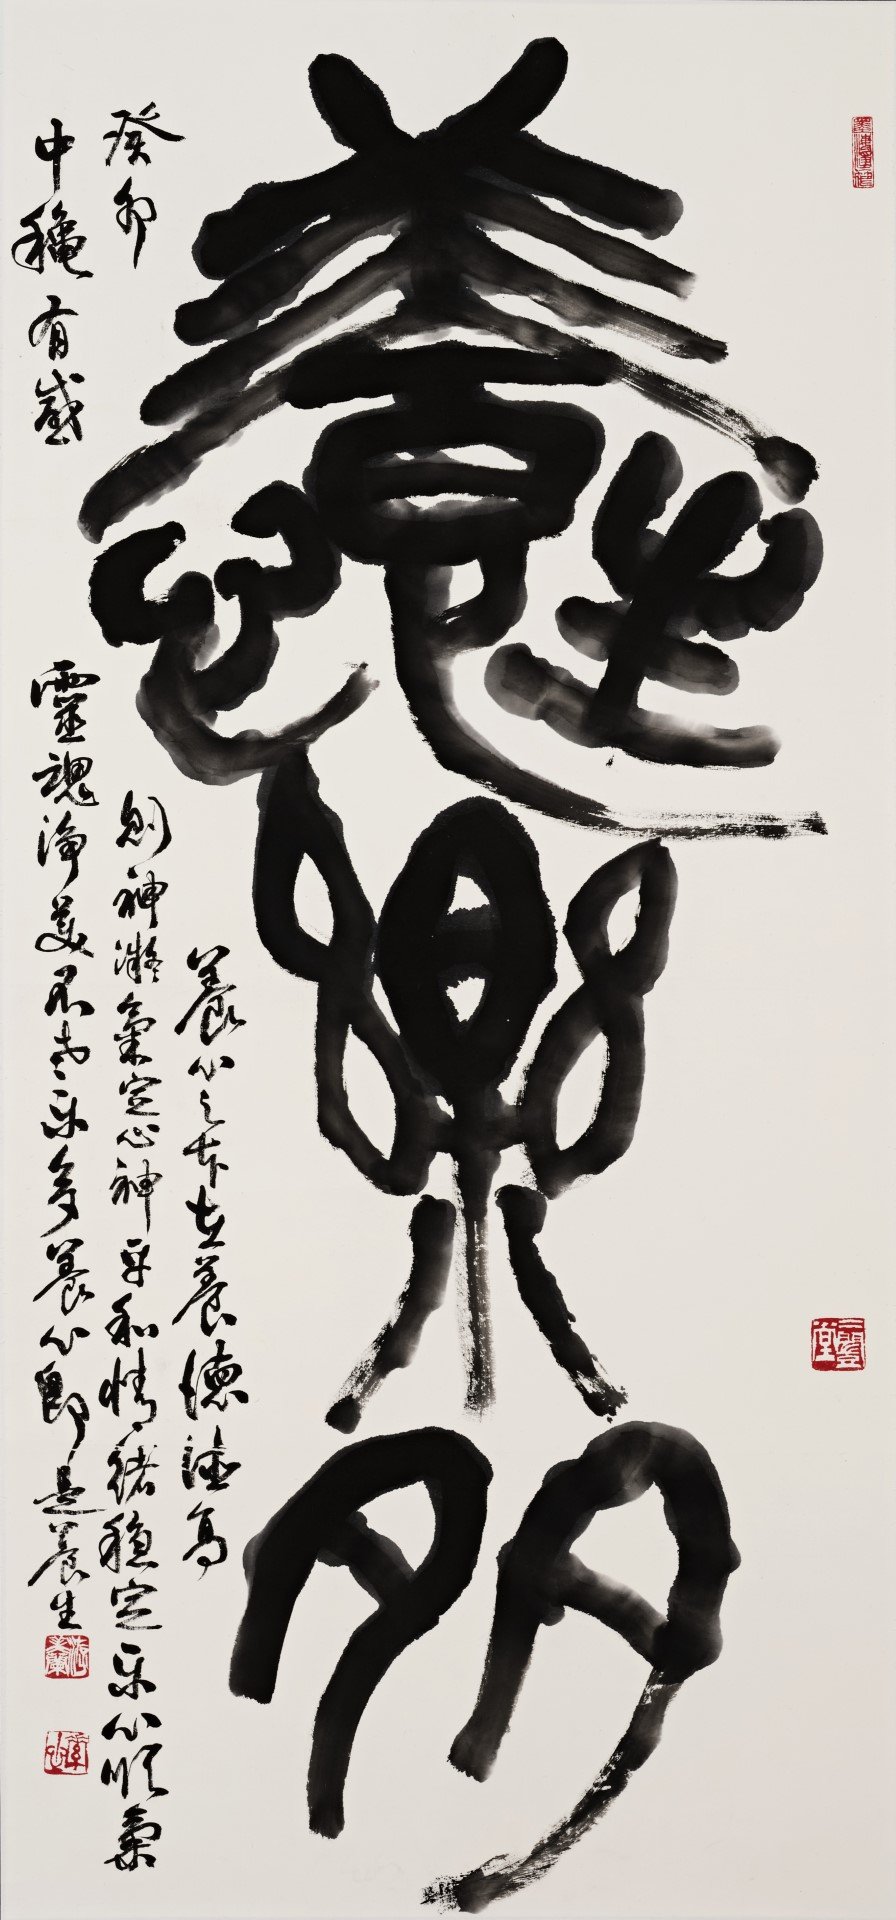 養樂多
養心之本在養德德高
則神凝氣定心神平和情緒穩定樂心順氣
靈魂淨美不老樂多養心即是養生
癸卯
中穐有感